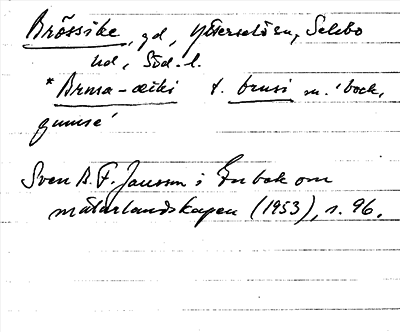 Brössike, gd, Ytterselö sn, Selebo
hd, Söd. l.
*Brusa-æiki t. brusi m. 'bock,
gumse'
Sven B. F. Jansson i En bok om
mälarlandskapen (1953), s. 96.